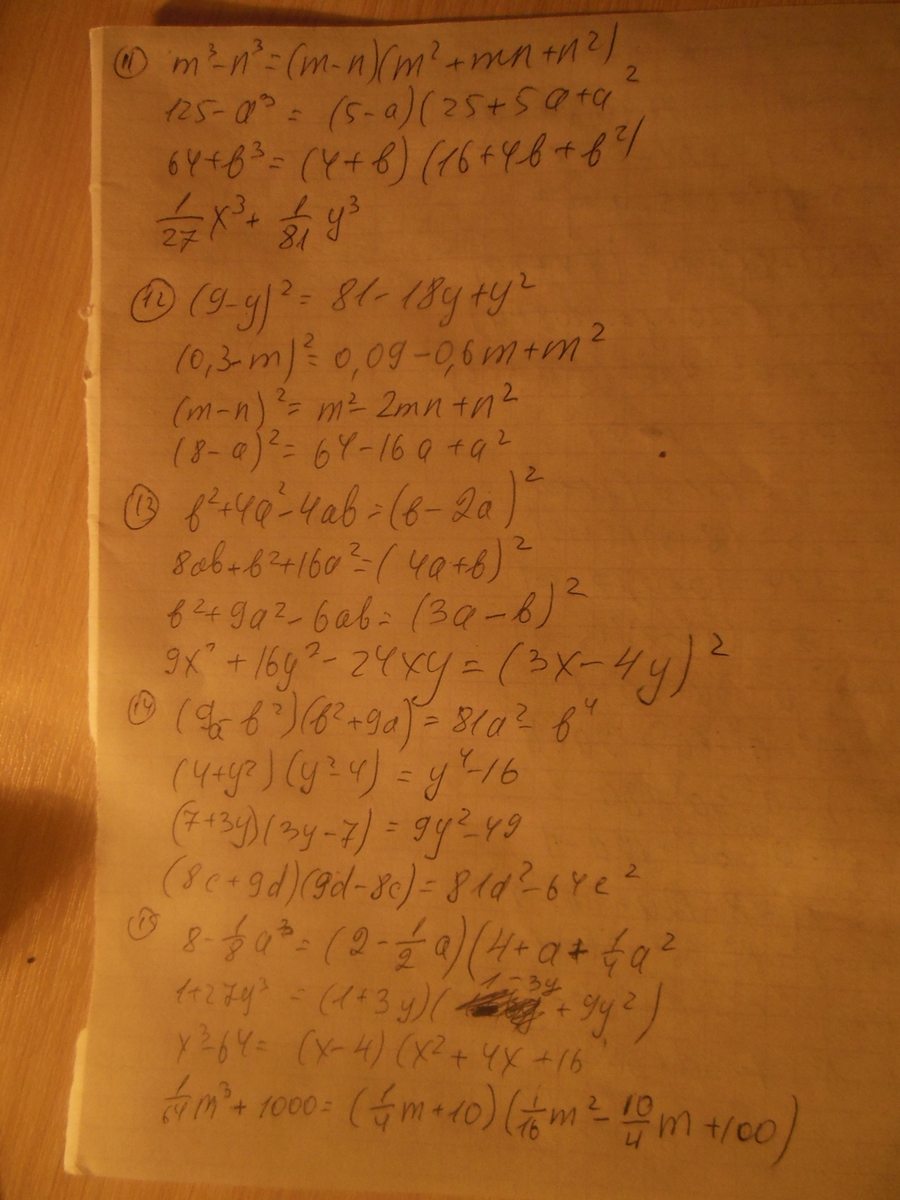 11) m³-n³=(m-n)(m²+mn+n²)
125-a³ = (5-a)(25+5a+a²
64+b³=(4+b)(16+4b+b²)
1/27 x³+ 1/81 y³
12) (9-y)²= 81-18y+y²
(0,3-m)²=0,09-0,6m+m²
(m-n)²= m²-2mn+n²
(8-a)²=64-16a+a²
13) b²+4a²-4ab=(b-2a)²
8ab+b²+16a²=(4a+b)²
b²+9a²-6ab=(3a-b)²
9x²+16y²-24xy=(3x-4y)²
14) (9a-b²)(b²+9a)=81a²-b⁴
(4+y²)(y²-4)=y⁴-16
(7+3y)(3y-7)=9y²-49
(8c+9d)(9d-8c)=81d²-64c²
15) 8-1/8 a³=(2-1/2 a)(4+a+1/4 a²
1+27y³ =(1+3y)(1-3y+9y²)
x³-64= (x-4)(x²+4x+16
1/64 m³+1000=(1/4 m+10)(1/16 m²-10/4 m+100)